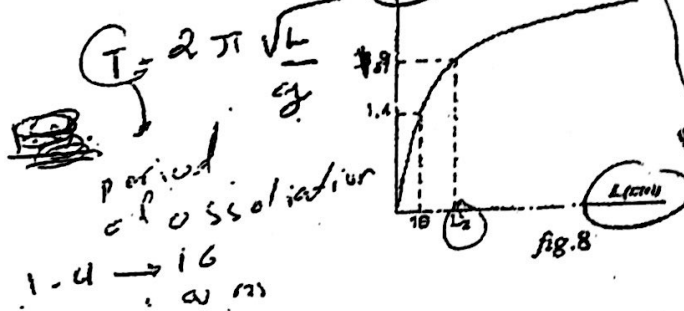 T = 2 π √L/g
period
of ossolication
1.4 → 16
1.4
16
L₂
L(cm)
fig.8